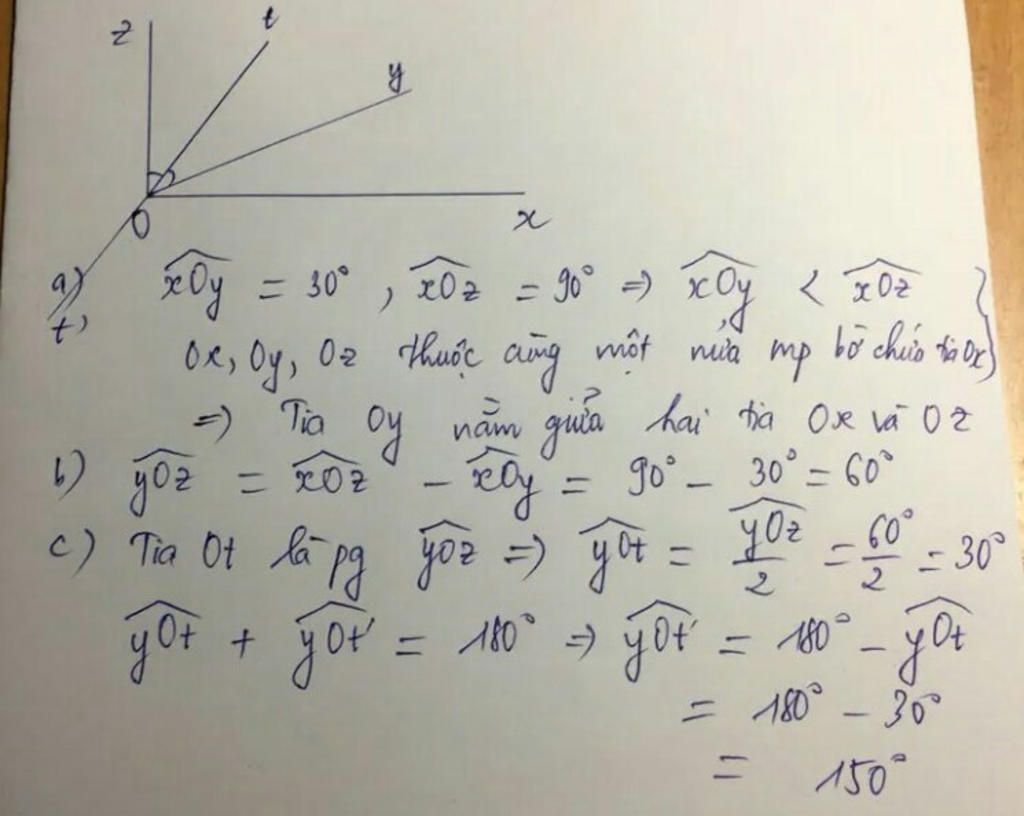 z t
y
O x
t'
a) xOy = 30°, xOz = 90° ⇒ xOy < xOz }
Ox, Oy, Oz thuộc cùng một nửa mp bờ chứa tia Ox
⇒ Tia Oy nằm giữa hai tia Ox và Oz
b) yOz = xOz - xOy = 90° - 30° = 60°
c) Tia Ot là pg yOz ⇒ yOt = yOz/2 = 60°/2 = 30°
yOt + yOt' = 180° ⇒ yOt' = 180° - yOt
= 180° - 30°
= 150°